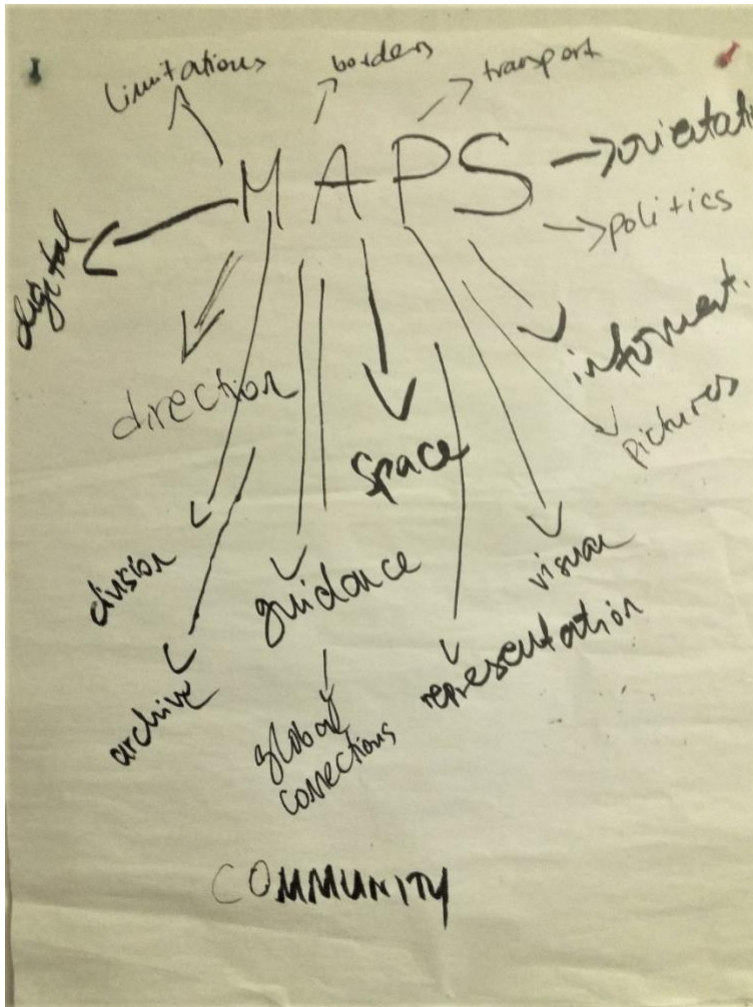 limitations
borders
transport
MAPS
orientati
politics
digital
direction
informat.
pictures
space
division
guidance
visual
representation
archive
global
connections
COMMUNITY